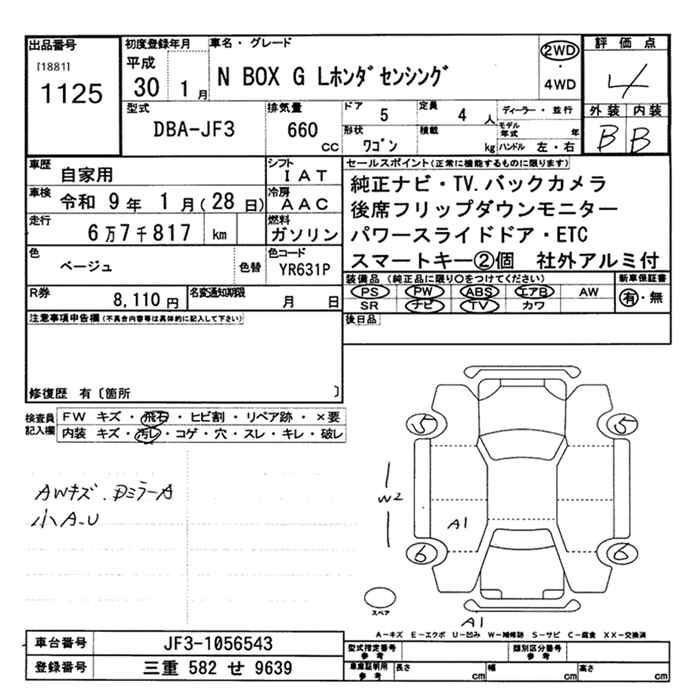 出品番号
[1881]
1125
初度登録年月
平成
30 1月
車名・グレード
N BOX G Lホンダセンシング
2WD
・
4WD
評価点
4
型式
DBA-JF3
排気量
660 CC
ドア 5
定員 4 人
ディーラー・並行
形状 ワゴン
積載 kg
モデル年式 年
ハンドル 左・右
外装 内装
B B
車歴 自家用
シフト IAT
車検 令和 9年 1月(28日)
冷房 AAC
走行 6万7千817 km
燃料 ガソリン
色 ベージュ 色替
色コード YR631P
R券 8,110円
名変通知期限 月 日
セールスポイント(正常に機能するものに限ります)
純正ナビ・TV.バックカメラ
後席フリップダウンモニター
パワースライドドア・ETC
スマートキー②個 社外アルミ付
装備品(純正品に限り○をつけてください)
PS PW ABS エアB AW
SR ナビ TV カワ
新車保証書
有・無
後日品
注意事項申告欄(不具合内容等は具体的に記入して下さい)
修復歴 有〔箇所 〕
検査員記入欄
FW キズ・飛石・ヒビ割・リペア跡・×要
内装 キズ・汚レ・コゲ・穴・スレ・キレ・破レ
AWキズ.DミラーA
小A.U
W2
5 5
A1
6 6
スペア
A1
A-キズ E-エクボ U-凹み W-補修跡 S-サビ C-腐食 XX-交換済
車台番号 JF3-1056543
登録番号 三重 582 せ 9639
型式指定番号参考
類別区分番号参考
車庫証明用参考 長さ cm 幅 cm 高さ cm